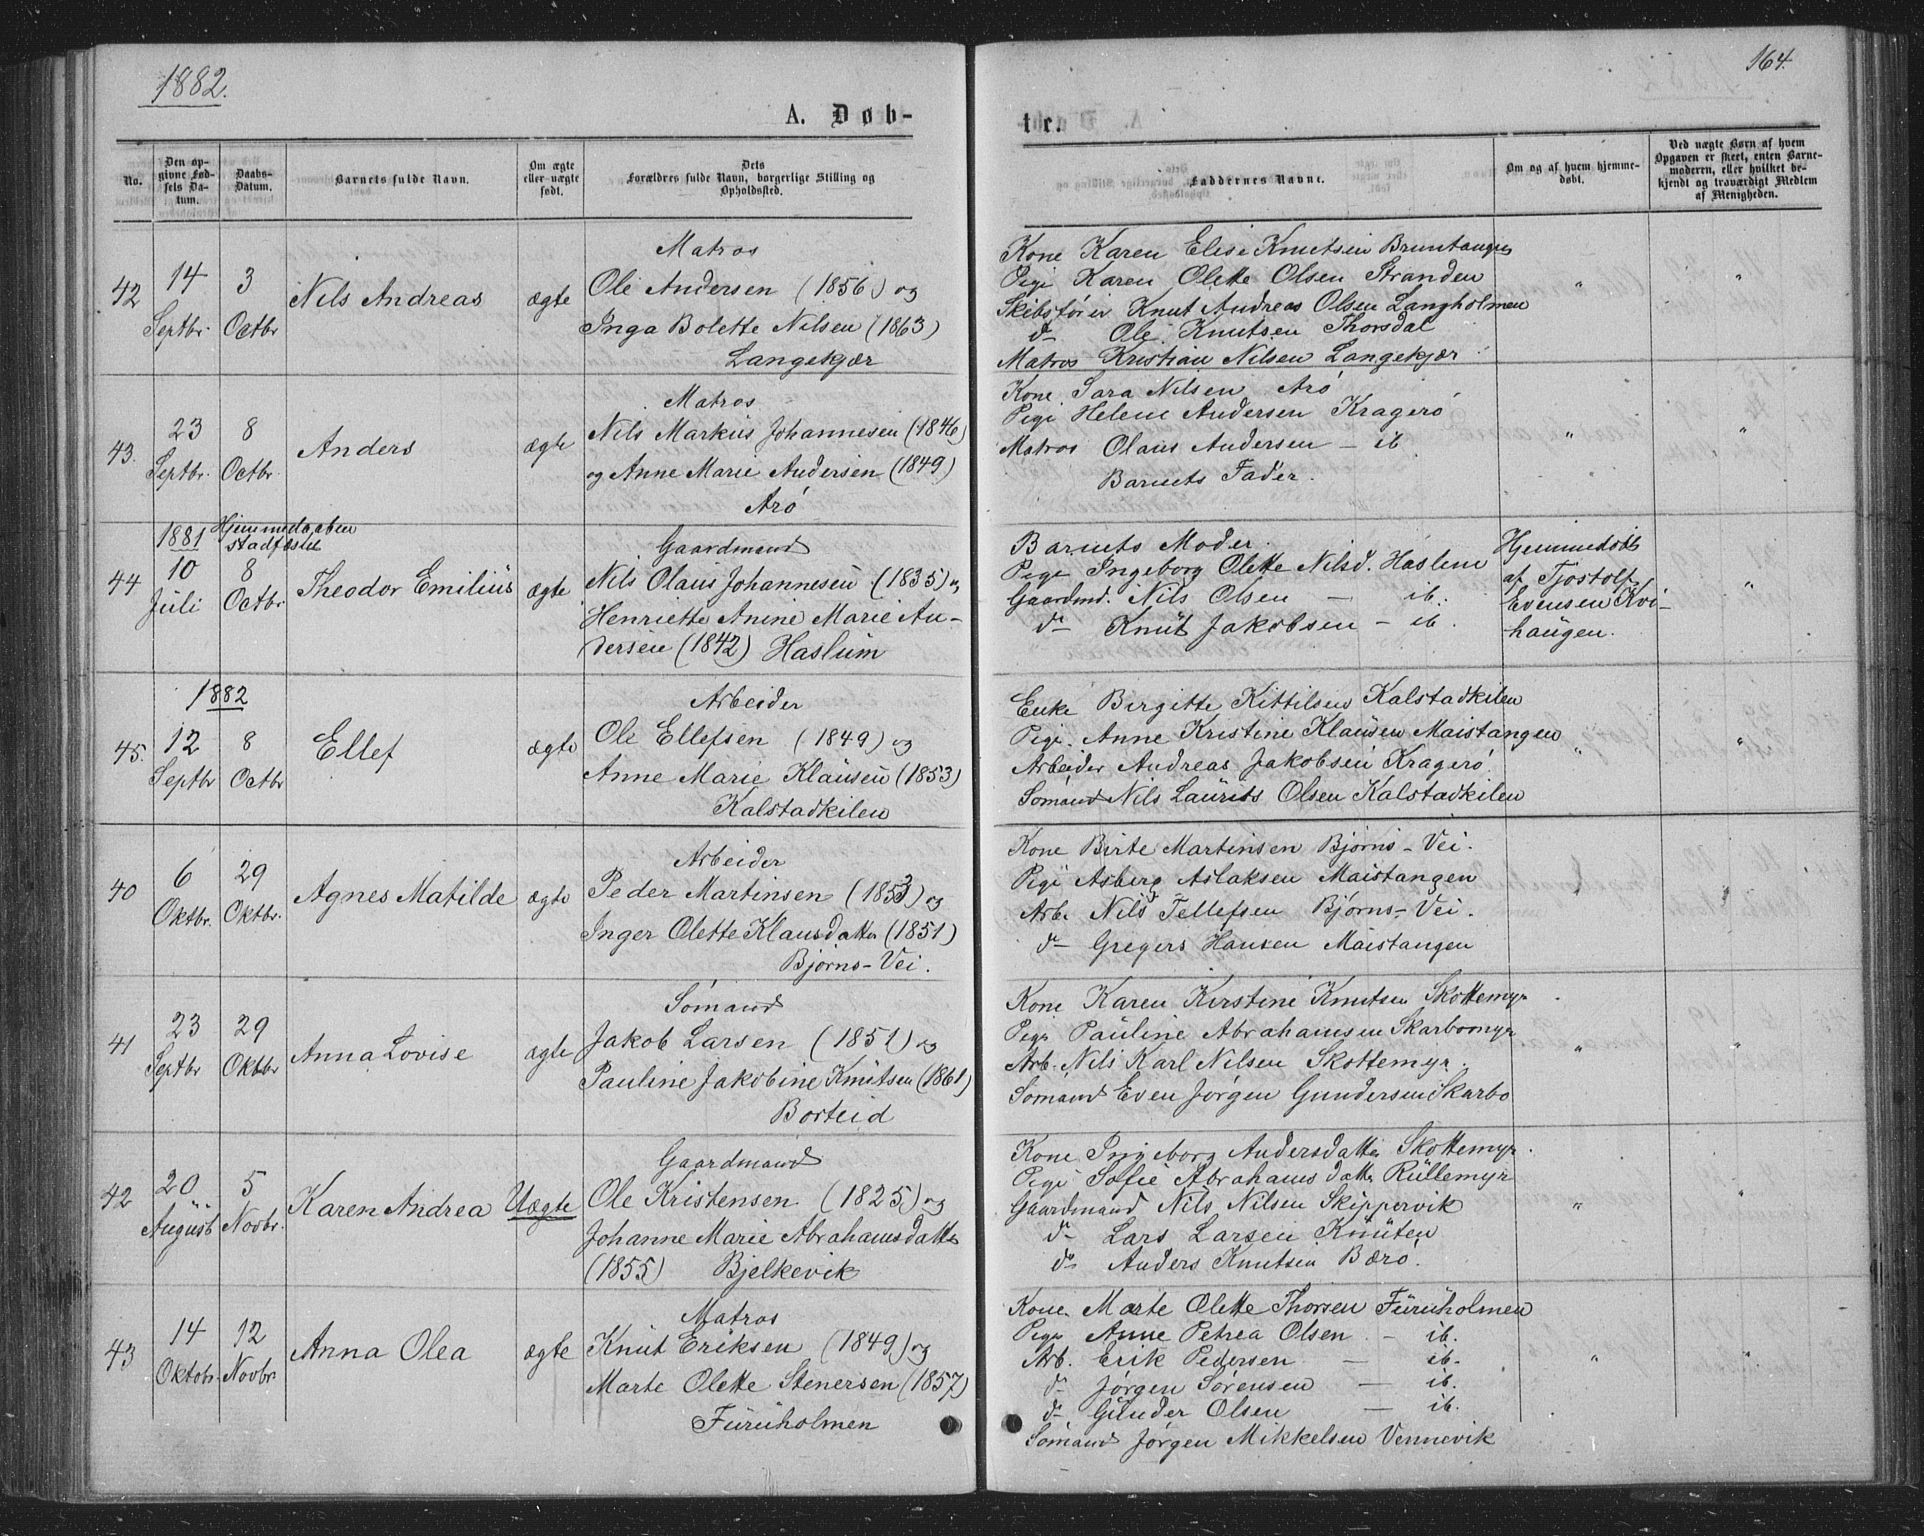 1882.
164.
A. Døb-
te.
No.
Den op-
givne Fød-
sels Da-
tum.
Daabs-
Datum.
Barnets fulde Navn.
Om ægte
eller uægte
født.
Dets
Forældres fulde Navn, borgerlige Stilling og
Opholdssted.
Faddernes Navne.
Om og af hvem hjemme-
døbt.
Ved uægte Børn af hvem
Opgaven er skeet, enten Barne-
moderen, eller hvilket be-
kjendt og troværdigt Medlem
af Menigheden.
42
14
Septbr.
3
Octbr
Nils Andreas
ægte
Matros
Ole Andersen (1856) og
Inga Bolette Nilsen (1863)
Langekjær
Kone Karen Elise Knutsen Bruntangen
Pige Karen Olette Olsen Stranden
Skibsfører Knut Andreas Olsen Langholmen
do Ole Knutsen Thorsdal
Matros Kristian Nilsen Langekjær
"
"
43.
23
Septbr.
8
Octbr.
Anders
ægte
Matros
Nils Markus Johannesen (1846)
og Anne Marie Andersen (1849)
Arö
Kone Sara Nilsen Arö
Pige Helene Andersen Kragerö
Matros Olaus Andersen - ib.
Barnets Fader.
"
"
44
1881
10
Juli
Hjemmedaaben
stadfæstet
8
Octbr
Theodor Emilius
ægte
Gaardmand
Nils Olaus Johannesen (1835) og
Henriette Anine Marie An-
dersen (1842) Haslum
Barnets Moder.
Pige Ingeborg Olette Nilsd. Haslum
Gaardmd. Nils Olsen - ib.
do Knut Jakobsen - ib.
Hjemmedöbt
af Tjostolf
Evensen Kvi-
haugen.
"
45.
1882
12
Septbr
8
Octbr
Ellef
ægte
Arbeider
Ole Ellefsen (1849) og
Anne Marie Klausen (1853)
Kalstadkilen
Enke Birgitte Kittilsen Kalstadkilen
Pige. Anne Kristine Klausen Maistangen
Arbeider Andreas Jakobsen Kragerö
Sömand Nils Laurits Olsen Kalstadkilen
"
"
40
6
Oktbr.
29
Oktbr.
Agnes Matilde
ægte
Arbeider
Peder Martinsen (1853) og
Inger Olette Klausdatter (1851)
Bjørns-Vei.
Kone Birte Martinsen Bjørns-Vei.
Pige Asberg Aslaksen Maistangen
Arb. Nils Tellefsen Bjørns-Vei.
do Gregers Hansen Maistangen
"
"
41
23
Septbr
29
Oktbr
Anna Lovise
ægte
Sömand
Jakob Larsen (1851) og
Pauline Jakobine Knutsen (1861)
Borteid
Kone Karen Kirstine Knutsen Skottemyr
Pige Pauline Abrahamsen Skarbomyr
Arb. Nils Karl Nilsen Skottemyr.
Sömand Even Jørgen Gundersen Skarbo
"
"
42
20
August
5
Novbr.
Karen Andrea
Uægte
Gaardmand
Ole Kristensen (1825) og
Johanne Marie Abrahamsdatter
(1855) Bjelkevik
Kone Ingeborg Andersdatter Skottemyr.
Pige Sofie Abrahamsdatter Rullemyr
Gaardmand Nils Nilsen Skippervik
do Lars Larsen Knuten
do Anders Knutsen Bærö.
"
"
43
14
Oktobr.
12
Novbr.
Anna Olea
ægte
Matros
Knut Eriksen (1849) og
Marte Olette Stenersen (1857)
Furuholmen
Kone Marte Olette Thorsen Furuholmen
Pige Anne Petrea Olsen - ib.
Arb. Erik Pedersen - ib.
do Jørgen Sørensen - ib.
do Gunder Olsen - ib.
Sömand Jørgen Mikkelsen Vennevik
"
"